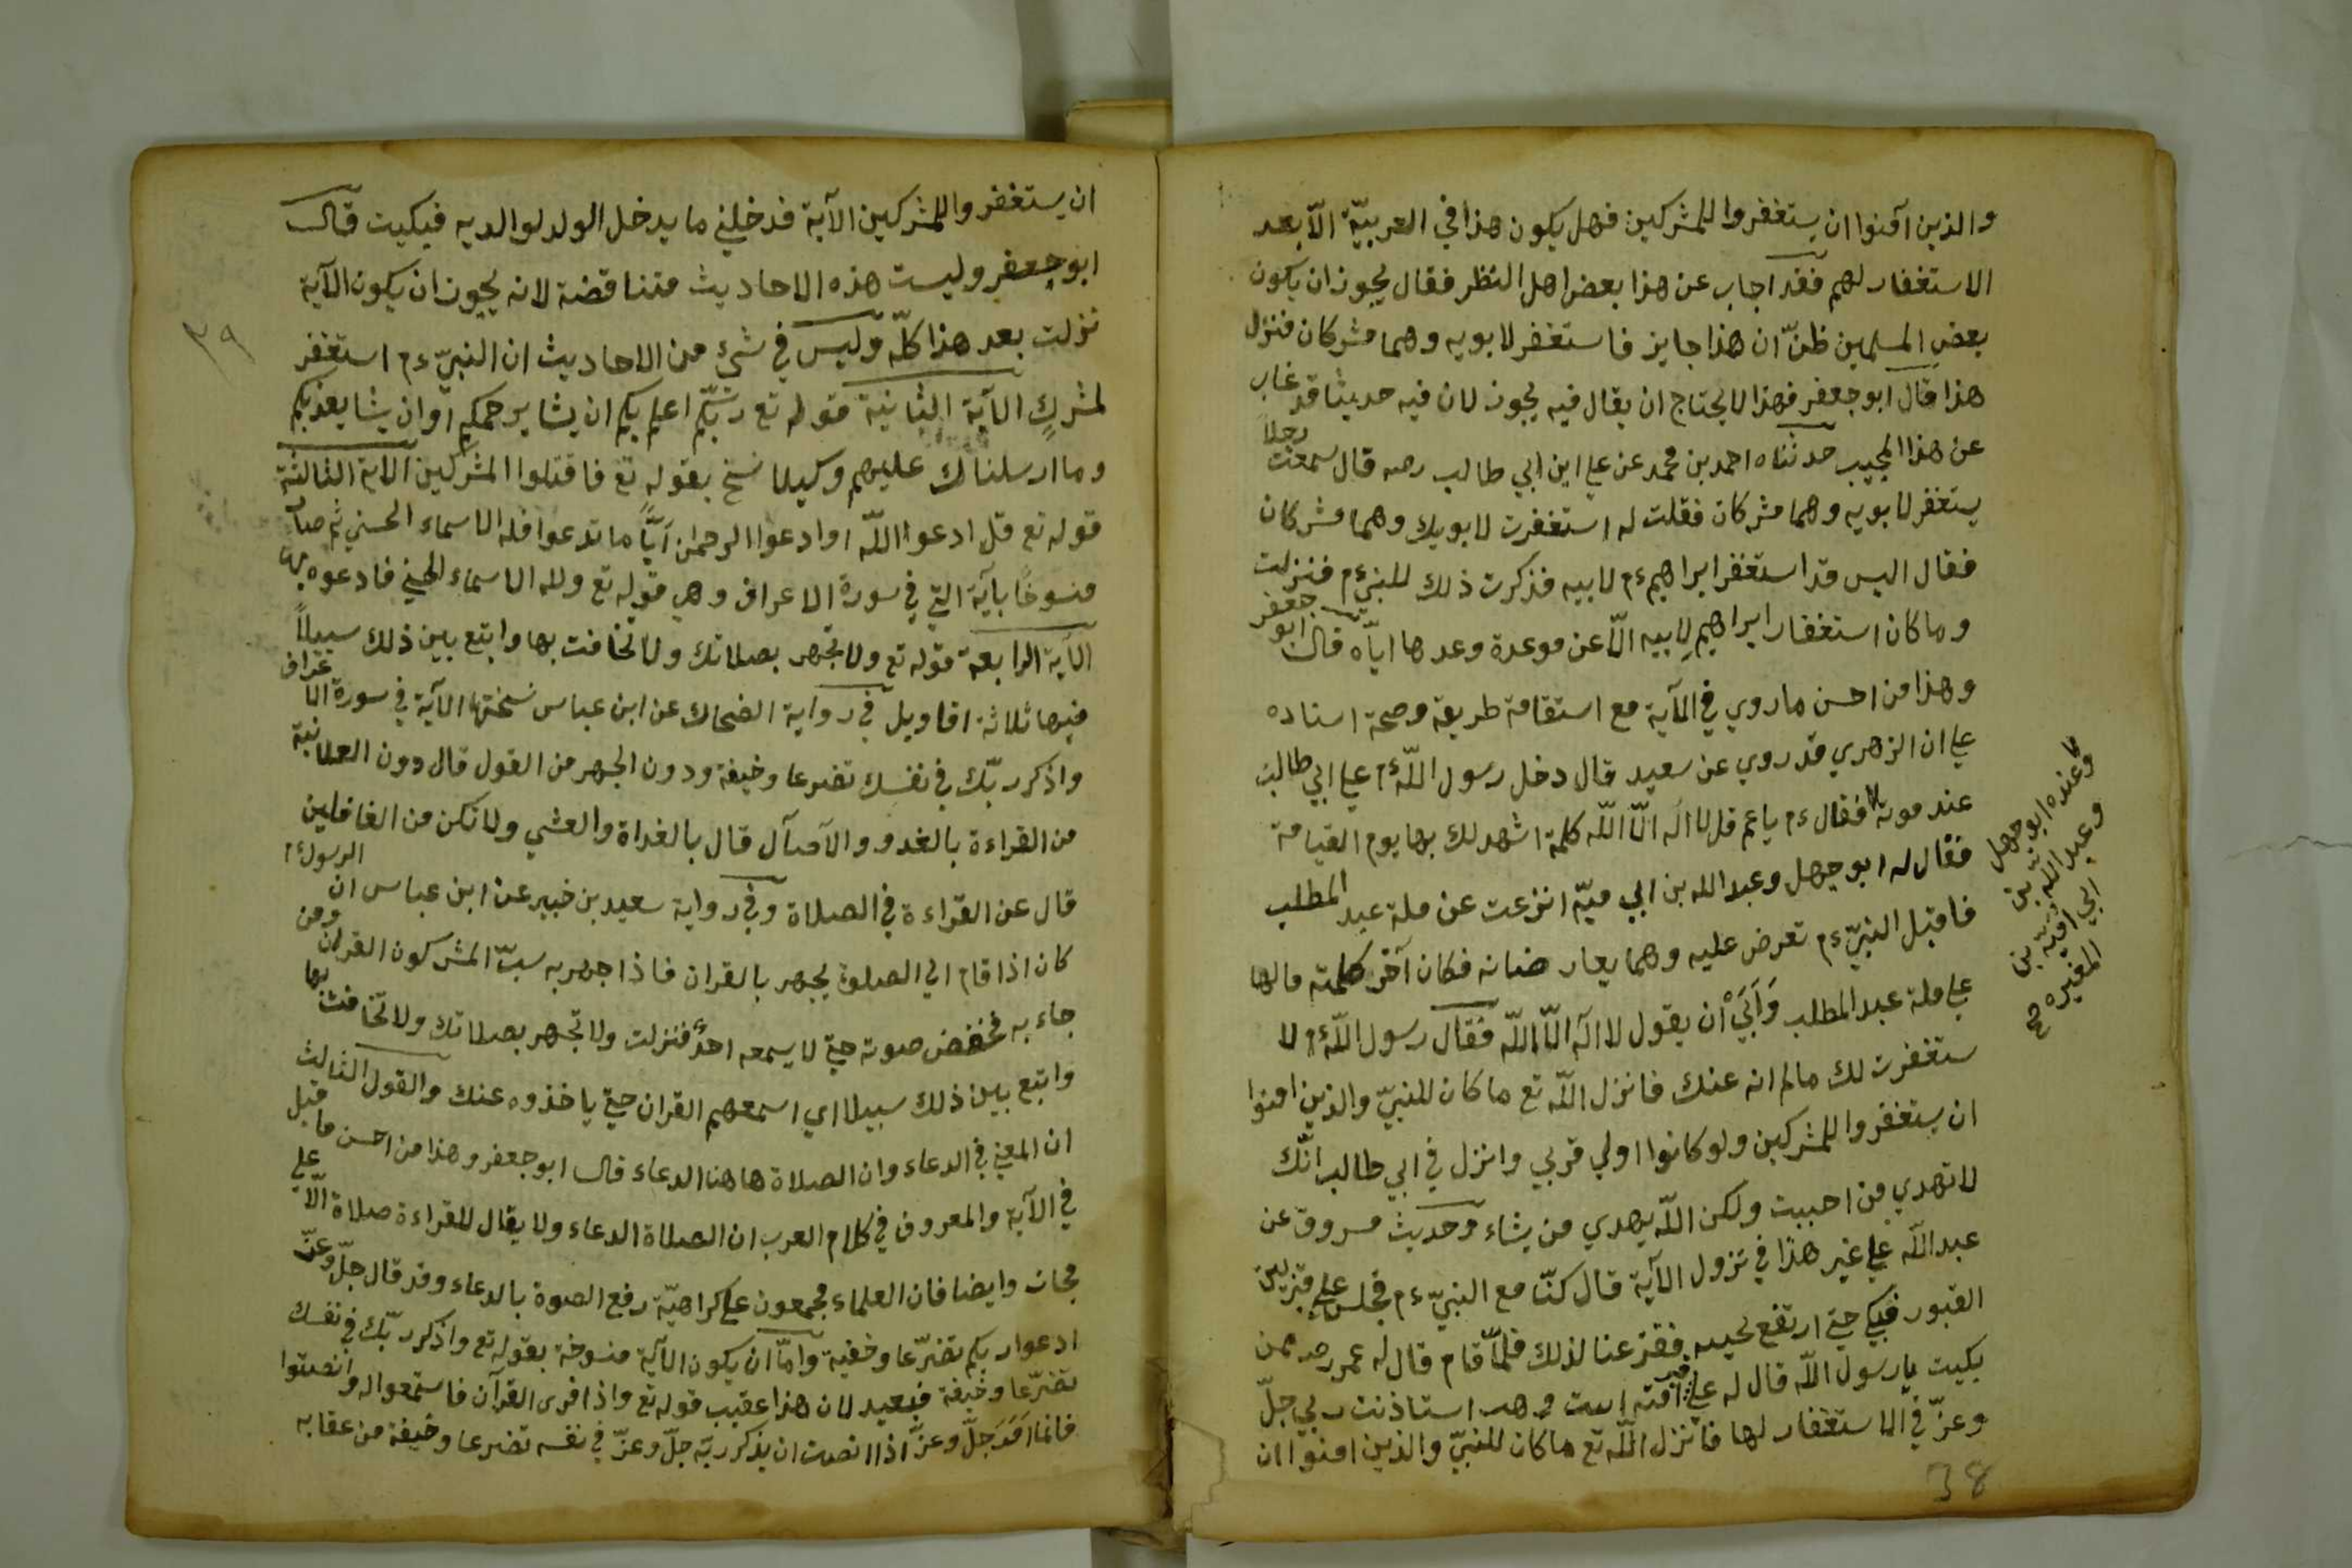 والذين آمنوا ان يستغفروا للمشركين فهل يكون هذا في العربيّة الّا بعد
الاستغفار لهم فقد اجاب عن هذا بعض اهل النظر فقال يجوز ان يكون
بعض المسلمين ظنّ ان هذا جايز فاستغفر لابويه وهما مشركان فنزل
هذا قال ابو جعفر فهذا لا يحتاج ان يقال فيه يجوز لان فيه حديثا قد غاب
عن هذا المجيب حدثناه احمد بن محمد عن علي ابن ابي طالب رضه قال سمعت رجلاً
يستغفر لابويه وهما مشركان فقلت له استغفرت لابويك وهما مشركان
فقال اليس قد استغفر ابراهيم ءم لابيه فذكرت ذلك للنبي ءم فنزلت
وما كان استغفار ابراهيم لابيه الّا عن موعدة وعدها ايّاه قال ابو جعفر
وهذا من احسن ما روي في الآية مع استقامة طريقة وصحة اسناده
علي ان الزهري قد روي عن سعيد قال دخل رسول اللّه ءم علي ابي طالب
عند موته فقال ءم يا عم قل لا اله الّا اللّه كلمة اشهد لك بها يوم القيامة
فقال له ابو جهل وعبد الله بن ابي ميّة انزعت عن ملة عبد المطلب
فاقبل النبيّ ءم تعرض عليه وهما يعارضانه فكان آخر كلمته مالها
علي ملة عبد المطلب وَاَبَيْ أن يقول لا اله الّا اللّه فقال رسول اللّه ءم لا
ستغفرت لك مالم انه عنك فانزل اللّه تع ما كان للنبيّ والذين امنوا
ان يستغفروا للمشركين ولو كانوا اولي قربي وانزل في ابي طالب انّك
لا تهدي من احببت ولكن اللّه يهدي من يشاء وحديث مسروق عن
عبد اللّه علي غير هذا في نزول الآية قال كنّا مع النبيّ ءم فجلس علي قبر بين
القبور فبكي حتي ارتفع نحيبه ففزعنا لذلك فلمّا قام قال له عمر رضه ممن
بكيت يا رسول اللّه قال له علي قبر آمنة استاذنت ربي جلّ
وعزّ في الاستغفار لها فانزل اللّه تع ما كان للنبيّ والذين امنوا ان
وعنده ابو جهل
وعبد اللّه بن
ابي اميّة بن
المغيره صح
38
٣٩
ان يستغفروا للمشركين الآية فدخلني ما يدخل الولد لوالديه فبكيت قال
ابو جعفر وليست هذه الاحاديث متناقضة لانه يجوز ان يكون الآية
نزلت بعد هذا كلّه وليس في شئ من الاحاديث ان النبيّ ءم استغفر
لمشركٍ الآية الثانية قوله تع ربّكم اعلم بكم ان يشا يرحمكم او ان يشا يعذبكم
وما ارسلناك عليهم وكيلا نسخ بقوله تع فاقتلوا المشركين الآية الثالثة
قوله تع قل ادعوا اللّه او ادعوا الرحمان ايّاً ما تدعوا فله الاسماء الحسني ثم صار
منسوخًا بآية التي في سورة الاعراف وهي قوله تع ولله الاسماء الحسني فادعوه بها
الآية الرابعة قوله تع ولا تجهر بصلاتك ولا تخافت بها وابتغ بين ذلك سبيلاً
فيها ثلاثة اقاويل في رواية الضحاك عن ابن عباس نسختها الآية في سورة الاعراف
واذكر ربّك في نفسك تضرعا وخيفة ودون الجهر من القول قال دون العلانية
من القراءة بالغدو والآصال قال بالغداة والعشي ولا تكن من الغافلين
قال عن القراءة في الصلاة وفي رواية سعيد بن خبير عن ابن عباس ان الرسول ءم
كان اذا قام الي الصلوة يجهر بالقران فاذا جهر به سبّ المشركون القران ومن
جاء به فخفض صوته حتي لا يسمعه احدٌ فنزلت ولا تجهر بصلاتك ولا تخافت بها
وابتغ بين ذلك سبيلا اي اسمعهم القران حتي ياخذوه عنك والقول الثالث
ان المعني في الدعاء وان الصلاة هاهنا الدعاء قال ابو جعفر وهذا من احسن ما قيل
في الآية والمعروف في كلام العرب ان الصلاة الدعاء ولا يقال للقراءة صلاة الّا علي
مجاز وايضا فان العلماء مجمعون علي كراهيّة رفع الصوة بالدعاء وقد قال جلّ وعزّ
ادعوا ربكم تضرّعا وخفية وامّا ان يكون الآية منسوخة بقوله تع واذكر ربّك في نفسك
تضرّعا وخيفة فبعيد لان هذا عقيب قوله تع واذا قرى القرآن فاستمعوا له وانصتوا
فانما اَمَرَ جلّ وعزّ اذا انصت ان يذكر ربّه جلّ وعزّ في نفسه تضرعا وخيفة من عقابه